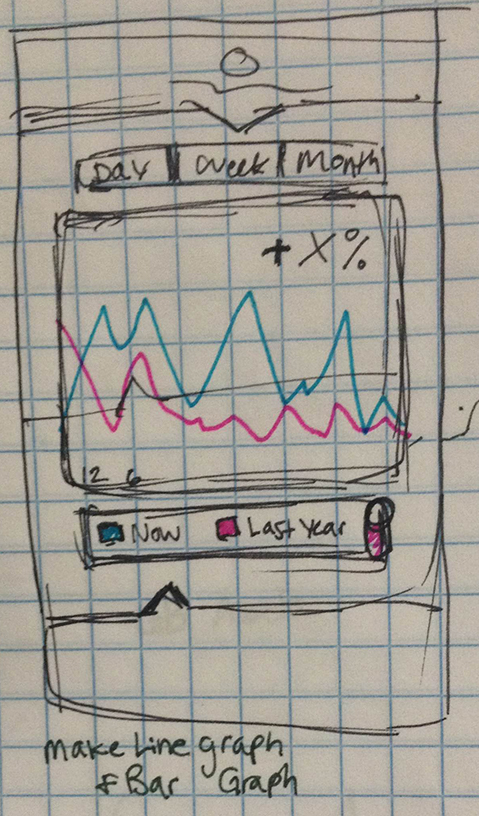 Day Week Month
+ X%
12 6
Now Last Year
make Line graph
& Bar Graph